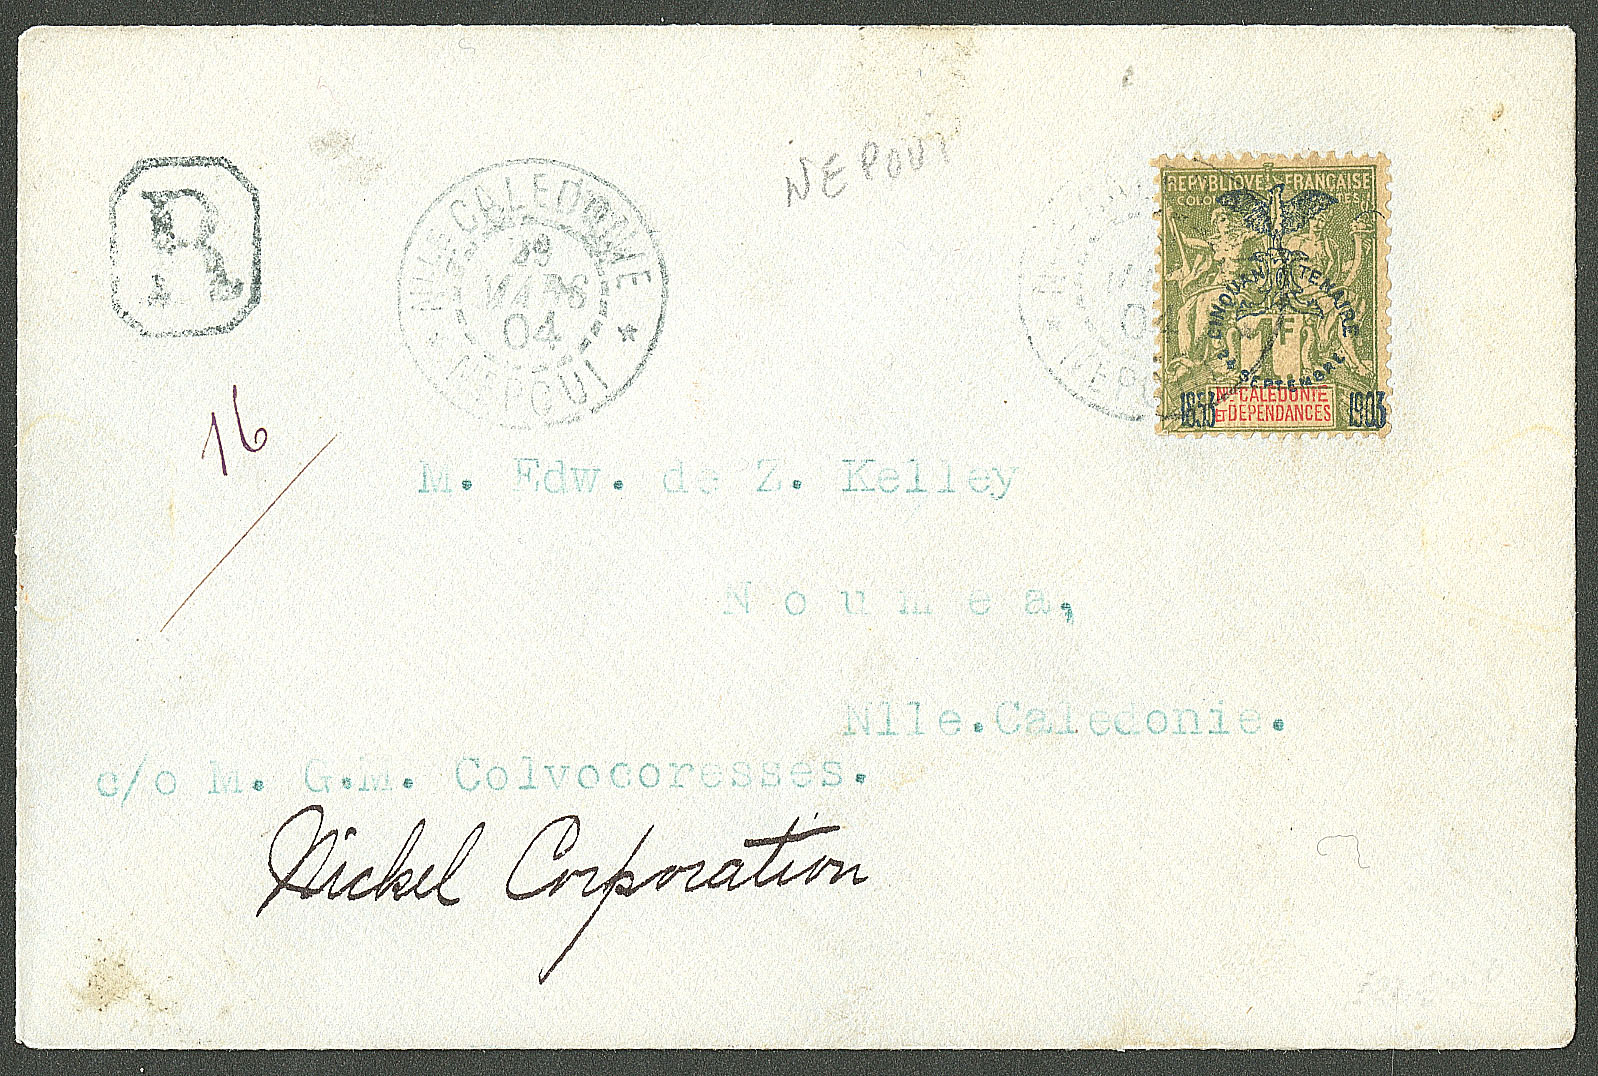 R
NLLE CALEDONIE
MARS
04
NEPOUI
NEPOUI
REPVBLIQVE FRANÇAISE
COLONIES
CINQUANTENAIRE
24 SEPTEMBRE
1F
1853 1903
NLLE CALEDONIE
ET DEPENDANCES
16
M. Edw. de Z. Kelley
Noumea,
Nlle.Caledonie.
c/o M. G.M. Colvocoresses.
Nickel Corporation